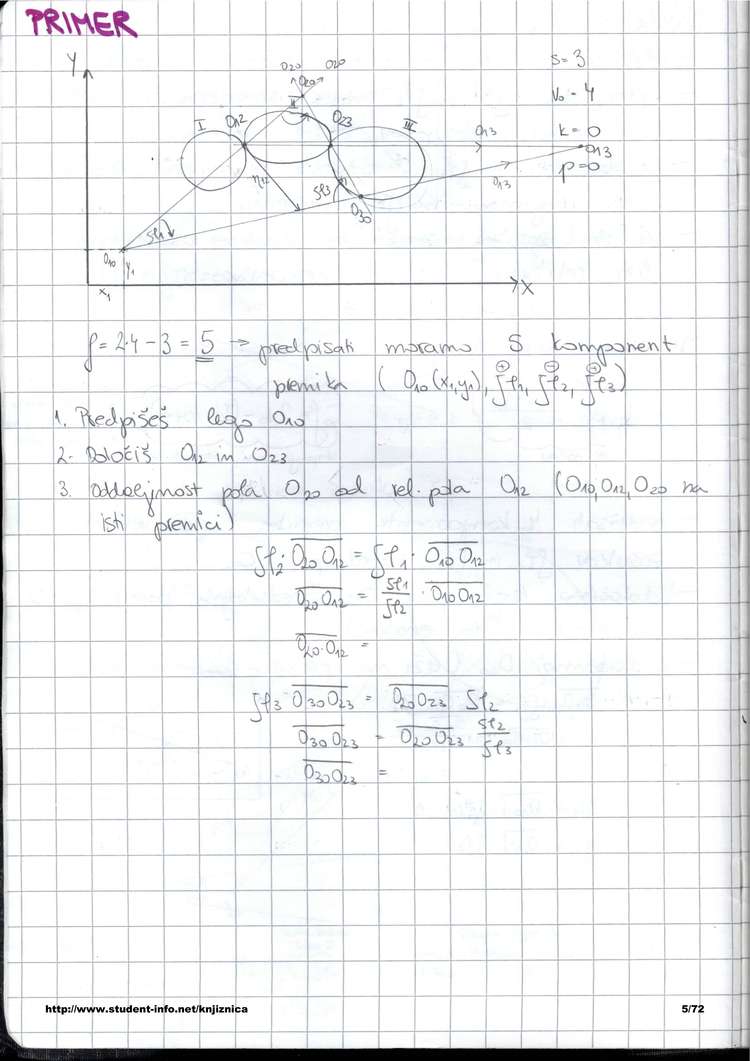 PRIMER
Y
O20 O20
O20
II
S = 3
V0 = 4
k = 0
p = 0
I
O12
O23
III
O13
O13
O13
r12
δφ3
O30
δφ1
O10
y1
x1
X
f = 2·4 − 3 = 5 → predpisati moramo 5 komponent
premika ( O10 (x1, y1), δφ1, δφ2, δφ3 )
⊕ ⊖ ⊕
1. Predpišeš lego O10
2. Določiš O12 in O23
3. Oddaljnost pola O20 od rel. pola O12 (O10, O12, O20 na
isti premici)
δφ2 · O20 O12 = δφ1 · O10 O12
O20 O12 = δφ1/δφ2 · O10 O12
O20 · O12 =
δφ3 O30 O23 = O20 O23 δφ2
O30 O23 = O20 O23 δφ2/δφ3
O30 O23 =
http://www.student-info.net/knjiznica
5/72